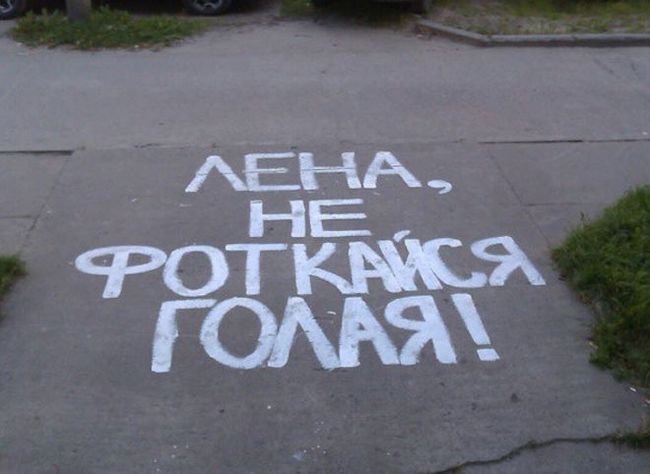 ЛЕНА,
НЕ
ФОТКАЙСЯ
ГОЛАЯ!